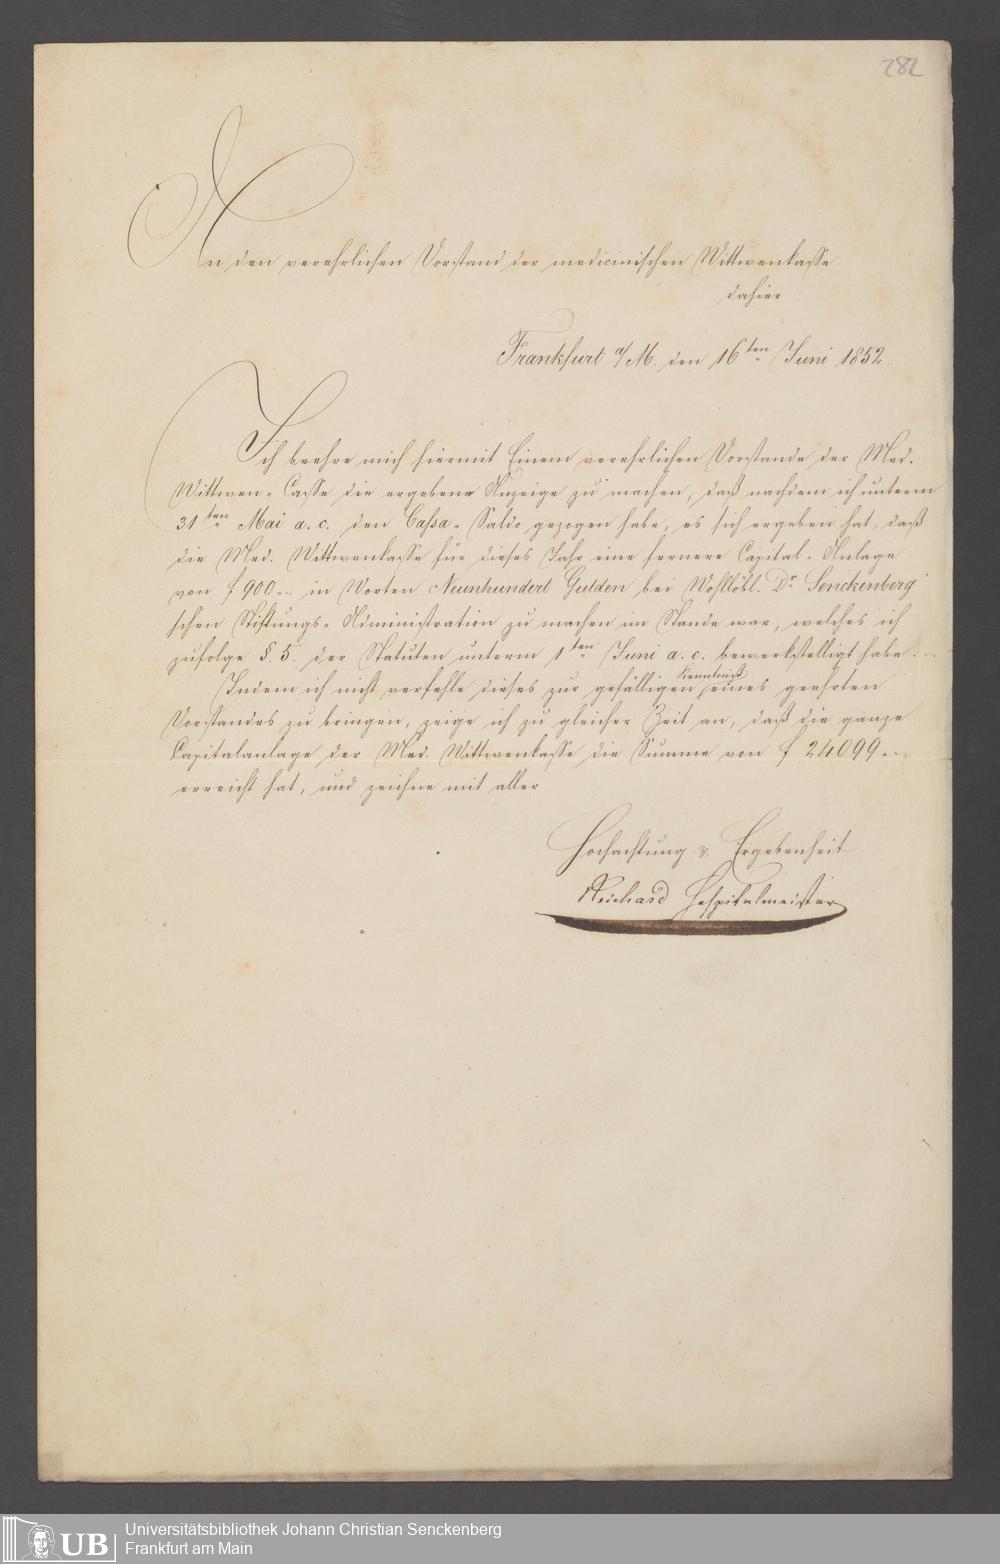 282
An den verehrlichen Vorstand der medicinischen Wittwenkasse
dahier
Frankfurt a/M. den 16ten Juni 1852.
Ich beehre mich hiermit Einem verehrlichen Vorstande der Med.
Wittwen-Casse die ergebene Anzeige zu machen, daß nachdem ich unterm
31ten Mai a. c. den Cassa-Saldo gezogen habe, es sich ergeben hat, daß
die Med. Wittwenkasse für dieses Jahr eine fernere Capital-Anlage
von f 900.- in Worten Neunhundert Gulden bei Wohllöbl. Dr. Senckenberg'
schen Stiftungs-Administration zu machen im Stande war, welches ich
zufolge §. 5. der Statuten unterm 1ten Juni a. c. bewerkstelligt habe.-
Indem ich nicht verfehle dieses zur gefälligen Kenntniß eines geehrten
Vorstandes zu bringen, zeige ich zu gleicher Zeit an, daß die ganze
Capitalanlage der Med. Wittwenkasse die Summe von f 24099.-
erreicht hat, und zeichne mit aller
Hochachtung & Ergebenheit
Reichard Hospitalmeister
UB
Universitätsbibliothek Johann Christian Senckenberg
Frankfurt am Main